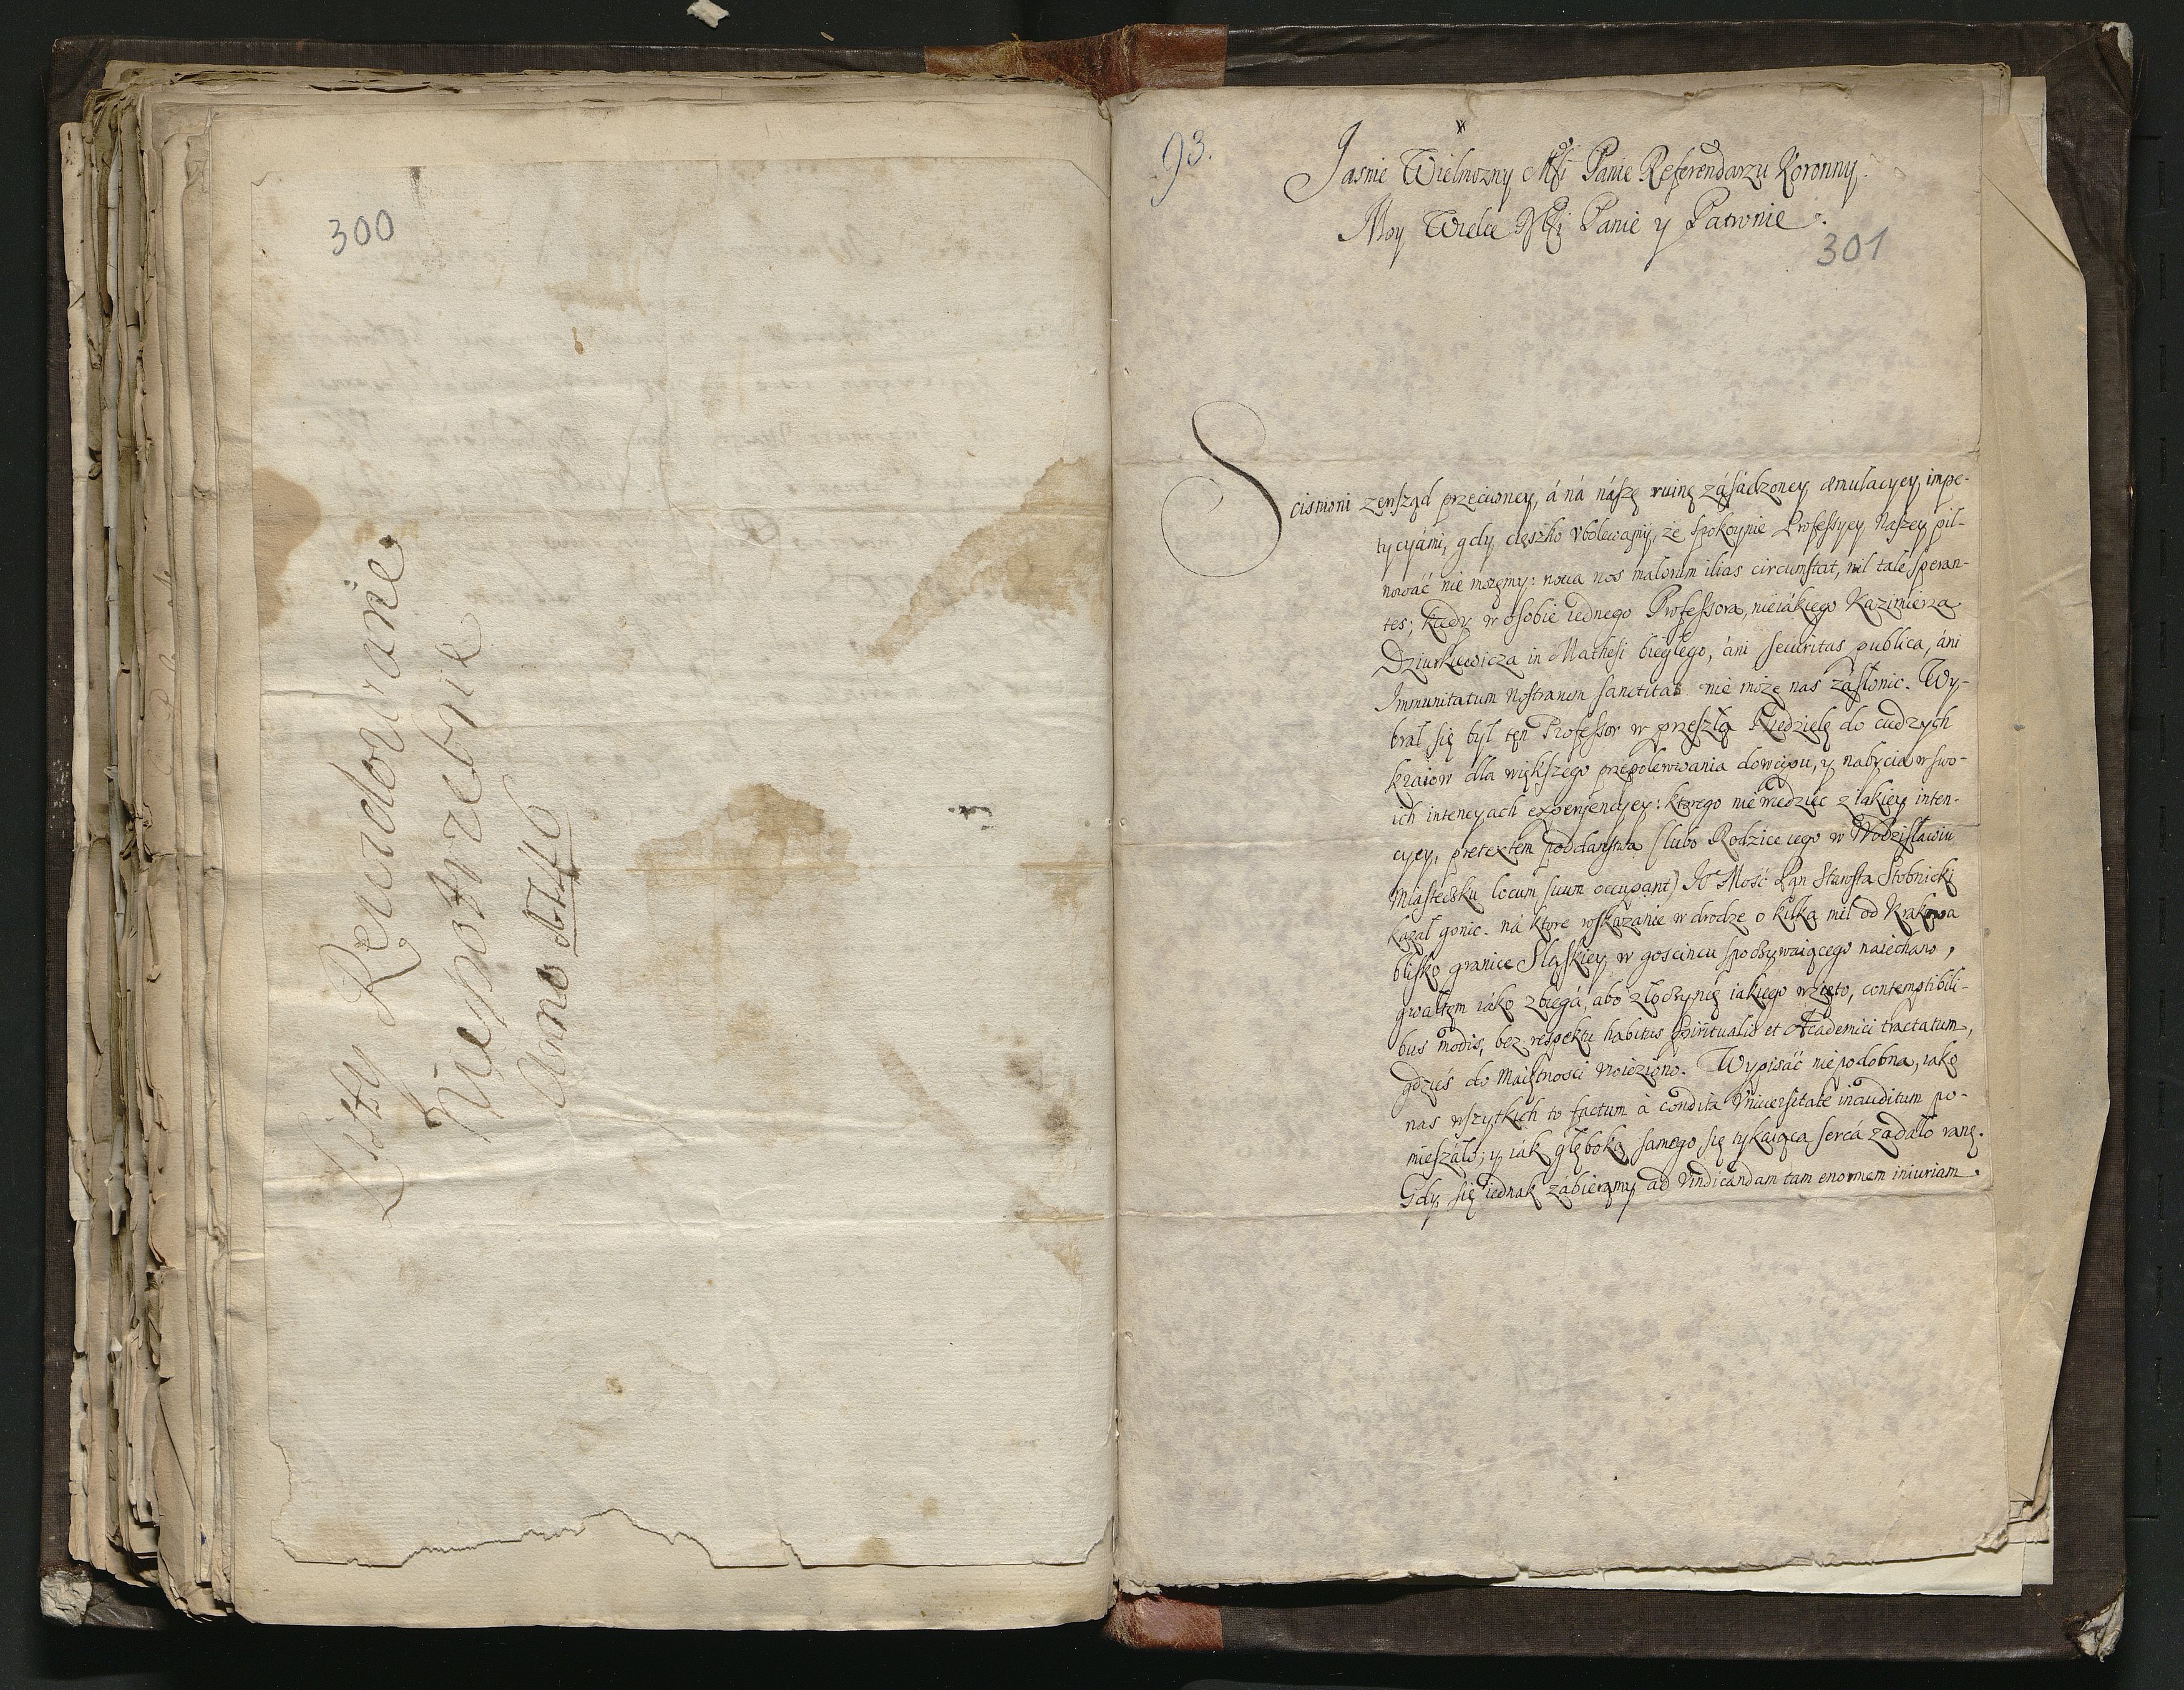 300
Listy Rewidowanie
Niepotrzebnie
Anno 1746
93.
Jasnie Wielmozny Msći Panie Referendarzu Koronny.
Moy Wielce Msći Panie y Patronie.
301
Scisnioni zewsząd przeciwney, á ná nászę ruinę zásádzoney æmulacyey impe-
tycyámi, gdy cięszko vbolewamy, ze spokoynie Professyey Naszey pil-
nowáć nie mozemy: noua nos malorum ilias circumstat, nil tale speran-
tes; kiedy w osobie iednego Professora, nieiákiego Kazimierza
Dziurkiewicza in Mathesi biegłego, áni securitas publica, áni
Immunitatum Nostrarum sanctitas nie może nas zasłonic. Wy-
brał się był ten Professor w przeszłą Niedzielę do cudzych
kraiow dla większego przepolerowania dowcipu, y nabycia w swo-
ich intencyach experyencyey: ktorego niewiedziec z iakiey inten-
cyey, pretextem poddanstwa (lubo Rodzice iego w Wodzisławiu
Miasteczku locum suum occupant) Jº Mość Pan Starosta Stobnicki
kazał gonic. ná ktore roskazanie w drodze o kilka mil od Krakowa
blisko granice Sląskiey w goscincu spoczywaiącego naiechano,
gwałtem iáko zbiegá, abo złoczyncę iakiego wzięto, contemptibili-
bus modis, bez respektu habitus spiritualis et Academici tractatum,
gdzieś do Maiętnosci vwieziono. Wypisáć niepodobna, iako
nas wszytkich to factum à condita Vniuersitate inauditum po-
mieszało; y iák głęboką samego się tykaiąca sercá zadało ranę.
Gdy się iednak zábieramy ad vindicandam tam enormem iniuriam